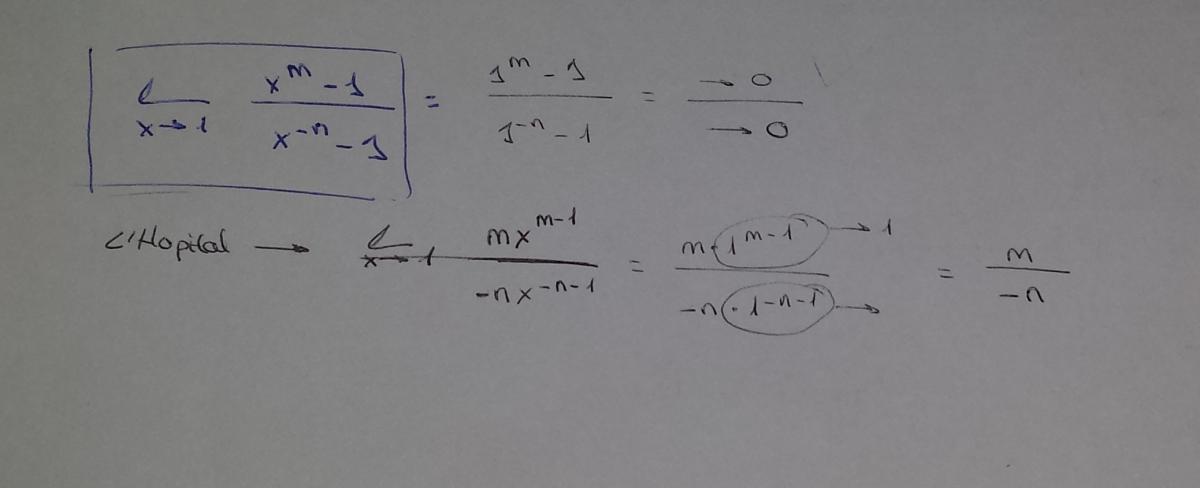 L x→1 (x^m - 1)/(x^-n - 1) = (1^m - 1)/(1^-n - 1) = (→ 0)/(→ 0)
L'Hopital → L x→1 (mx^m-1)/(-nx^-n-1) = (m·1^m-1 → 1)/(-n·1^-n-1 →) = m/(-n)